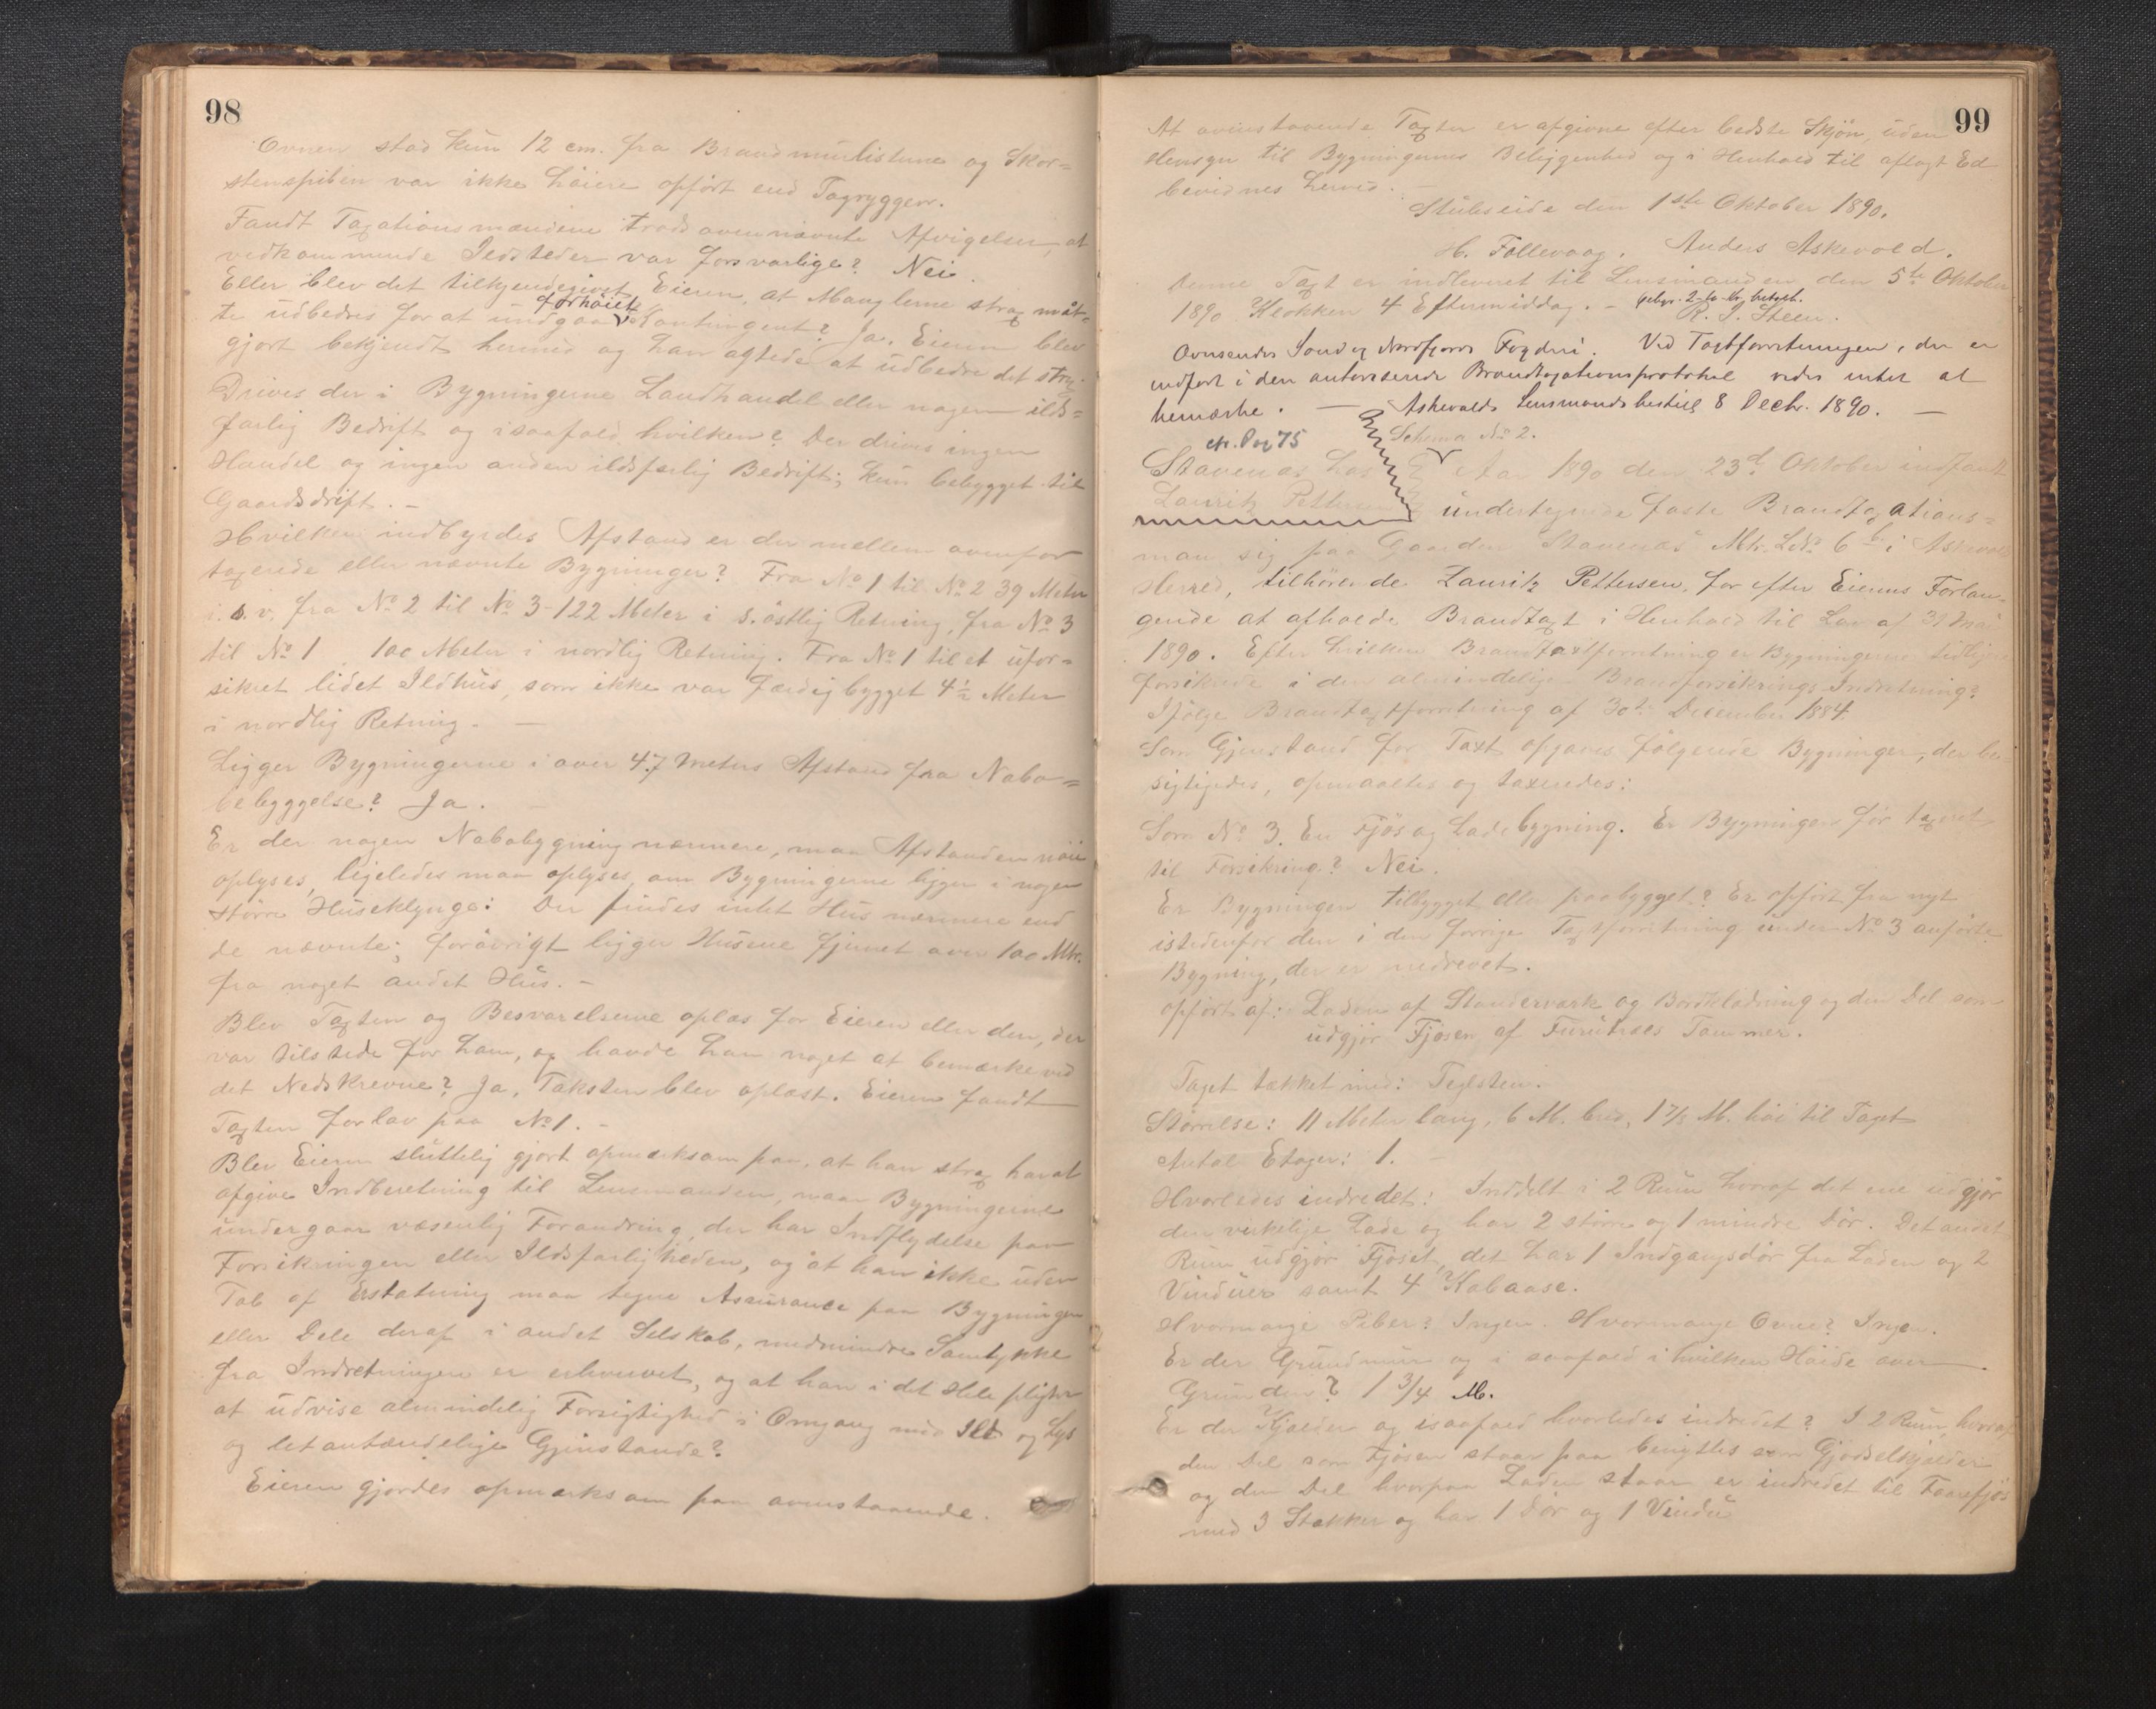 98
Ovnen stod kun 12 cm. fra Brandmurlisterne og Skor=
stenspiben var ikke höiere opfört end Tagryggen.
Fandt Taxationsmændene trods ovennævnte Afvigelser, at
vedkommende Ildsteder var forsvarlige? Nei.
Eller blev det tilkjendegivet Eieren, at Manglerne strax måt-
te udbedres for at undgaa forhöiet Kontingent? Ja, Eieren blev
gjort bekjendt hermed og han agtede at udbedre det strax.
Drives der i Bygningerne Landhandel eller nogen ilds=
farlig Bedrift og isaafald hvilken? Der drives ingen
Handel og ingen anden ildsfarlig Bedrift; kun bebygget til
Gaardsdrift. -
Hvilken indbyrdes Afstand er der mellem ovenfor
taxerede eller nævnte Bygninger? Fra No 1 til No 2 39 Meter
i s. v. fra No 2 til No 3 - 122 Meter i s. östlig Retning, fra No 3
til No 1 100 Meter i nordlig Retning. Fra No 1 til et ufor=
sikret lidet Ildhus, som ikke var færdig bygget 4½ Meter
i nordlig Retning. -
Ligger Bygningerne i over 47 Meters Afstand fra Nabo=
bebyggelse? Ja. -
Er der nogen Nabobygning nærmere, maa Afstanden nöie
oplyses, ligeledes maa oplyses, om Bygningerne ligger i nogen
större Huseklynge: Der findes intet Hus nærmere end
de nævnte; foråvrigt ligger Husene fjernet over 100 Mtr.
fra noget andet Hus. -
Blev Taxten og Besvarelserne oplæs for Eieren eller den, der
var tilstede for ham, og havde han noget at bemærke ved
det Nedskrevne? Ja, Taksten blev oplæst. Eieren fandt
Taxten for lav paa No 1. -
Blev Eieren sluttelig gjort opmærksom paa, at han strax har at
afgive Indberetning til Lensmanden, naar Bygningerne
undergaar væsenlig Forandring, der har Indflydelse paa
Forsikringen eller Ildsfarligheden, og at han ikke uden
Tab af Erstatning maa tegne Assurance paa Bygningen
eller Dele deraf i andet Selskab, medmindre Samtykke
fra Indretningen er erhvervet, og at han i det Hele pligter
at udvise almindelig Forsigtighed i Omgang med Ild og Lys
og letantændelige Gjenstande?
Eieren gjordes opmærksom paa ovenstaaende.
99
At ovenstaaende Taxter er afgivne efter bedste Skjön, uden
Hensyn til Bygningernes Beliggenhed og i Henhold til aflagt Ed
bevidnes herved. -
Stubseide den 1ste Oktober 1890.
H. Follevaag. Anders Askevold.
Denne Taxt er indleveret til Lensmanden den 5te Oktober
1890 Klokken 4 Eftermiddag. - Gebyr. 2 to Kr. betalt.
R. J. Steen.
Ovensendes Sønd og Nordfjords Fogderi. Ved Taxtforretningen, der er
indført i den autoriserede Brandtaxationsprotokol vides intet at
bemærke. - Askevolds Lensmandsbestil 8 Decbr. 1890. -
cfr. Pag 75
Schema No 2.
Stavenæs hos Aar 1890 den 23d Oktober indfandt
Lauritz Pettersen undertegnede faste Brandtaxations=
mæn sig paa Gaarden Stavenæs Mtr. Lb. No 6 b. i Askevold
Herred, tilhörende Lauritz Pettersen, for efter Eierens Forlan=
gende at afholde Brandtaxt i Henhold til Lov af 31 Mai
1890. Efter hvilken Brandtaxtforretning er Bygningerne tidligere
forsikrede i den almindelige Brandforsikrings-Indretning?
Ifölge Brandtaxtforretning af 30te December 1884.
Som Gjenstand for Taxt opgaves fölgende Bygninger, der be-
sigtigedes, opmaaltes og taxeredes:
Som No 3. En Fjös og Ladebygning. Er Bygningen för taxeret
til Forsikring? Nei.
Er Bygningen tilbygget eller paabygget? Er opfört fra nyt
istedenfor den i den forrige Taxtforretning under No 3 anförte
Bygning, der er nedrevet.
opfört af: Laden af Standerværk og Bordklædning og den Del som
udgjör Fjösen af Furutræes Tømmer.
Taget tækket med: Teglsten.
Störrelse: 11 Meter lang, 6 M. bred, 1 7/8 M. höi til Taget
Antal Etager: 1. -
Hvorledes indredet: Inddelt i 2 Rum hvoraf det ene udgjör
den virkelige Lade og har 2 större og 1 mindre Dör. Det andet
Rum udgjör Fjöset, det har 1 Indgangsdör fra Laden og 2
Vinduer samt 4 Kobaase.
Hvormange Piber? Ingen. Hvormange Ovne? Ingen.
Er der Grundmur og i saafald i hvilken Höide over
Grunden? 1 3/4 M.
Er der Kjælder og isaafald hvorledes indredet? I 2 Rum, hvoraf
den Del som Fjösen staar paa benyttes som Gjödselkjælder
og den Del hvorpaa Laden staar er indredet til Faarefjös
med 3 Stakker og har 1 Dör og 1 Vindu